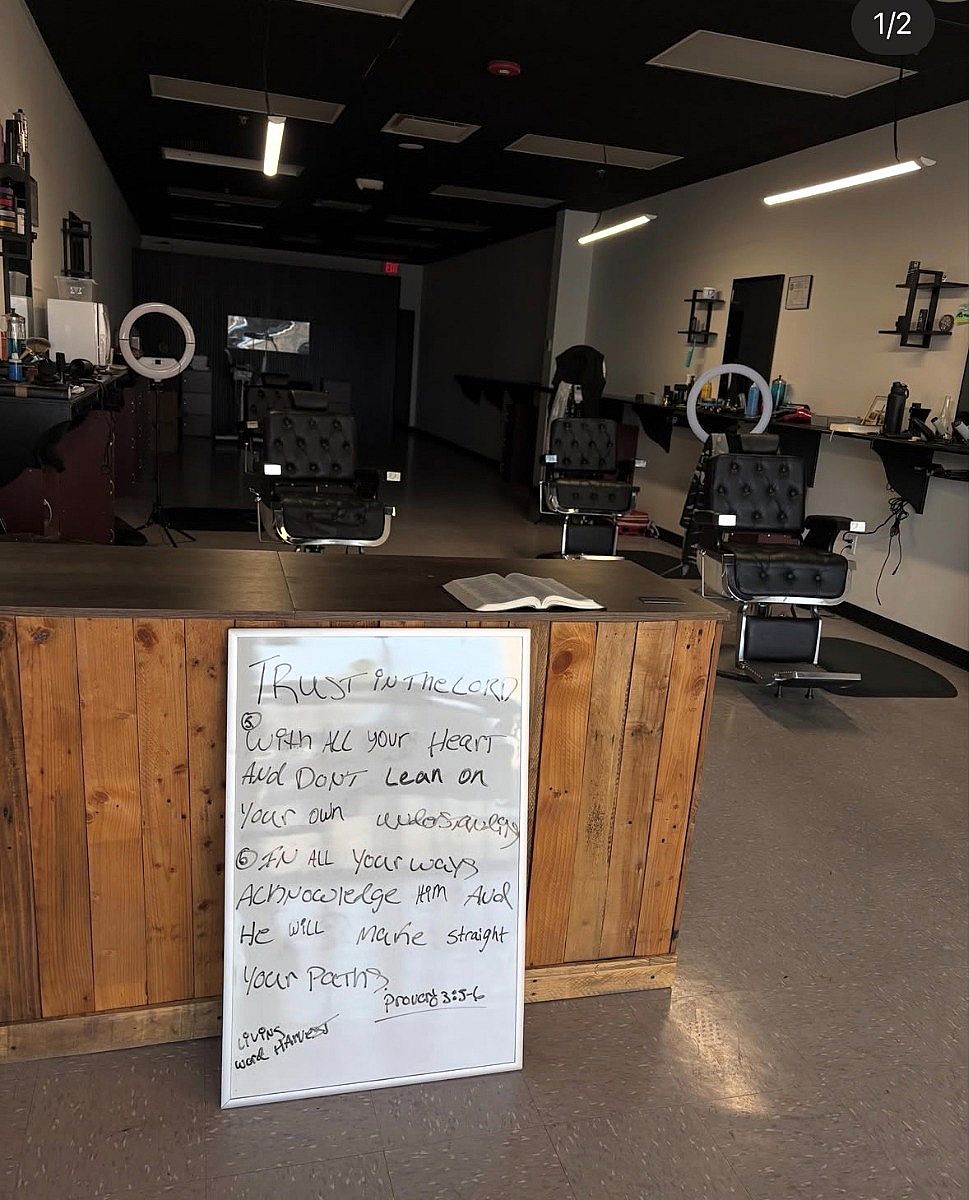 1/2
EXIT
TRUST IN THE LORD
⑤
With ALL your Heart
And DON'T Lean on
Your own
⑥ IN ALL Your ways
Acknowledge Him And
He will Make straight
Your Paths.
Proverb 3:5-6
LIVING
word HARVEST